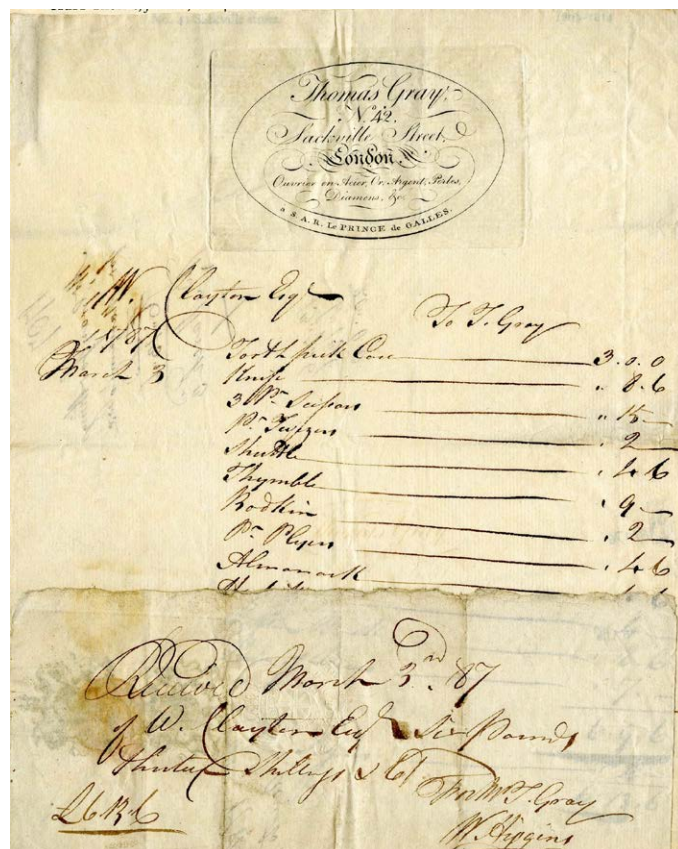 Thomas Gray,
No. 42.
Sackville Street,
London.
Ouvrier en Acier, Or, Argent, Perles,
Diamens, &c.
a S.A.R. Le PRINCE de GALLES.
W. Clayton Esqr
To T. Gray
1787
March 3
Toothpick Case 3.0.0
Knife " 8.6
3 Pr. Scissors " 15 —
Pr. Twizers . 2 —
Shuttle . 4 6
Thymble . 9 —
Bodkin . 2 —
Pr. Plyers . 4 6
Almanack . 4 6
Received March 3rd. 87
of W. Clayton Esqr Six Pounds
Thirteen Shillings & 6d
£6.13.6
For Mr T. Gray
W. Higgins